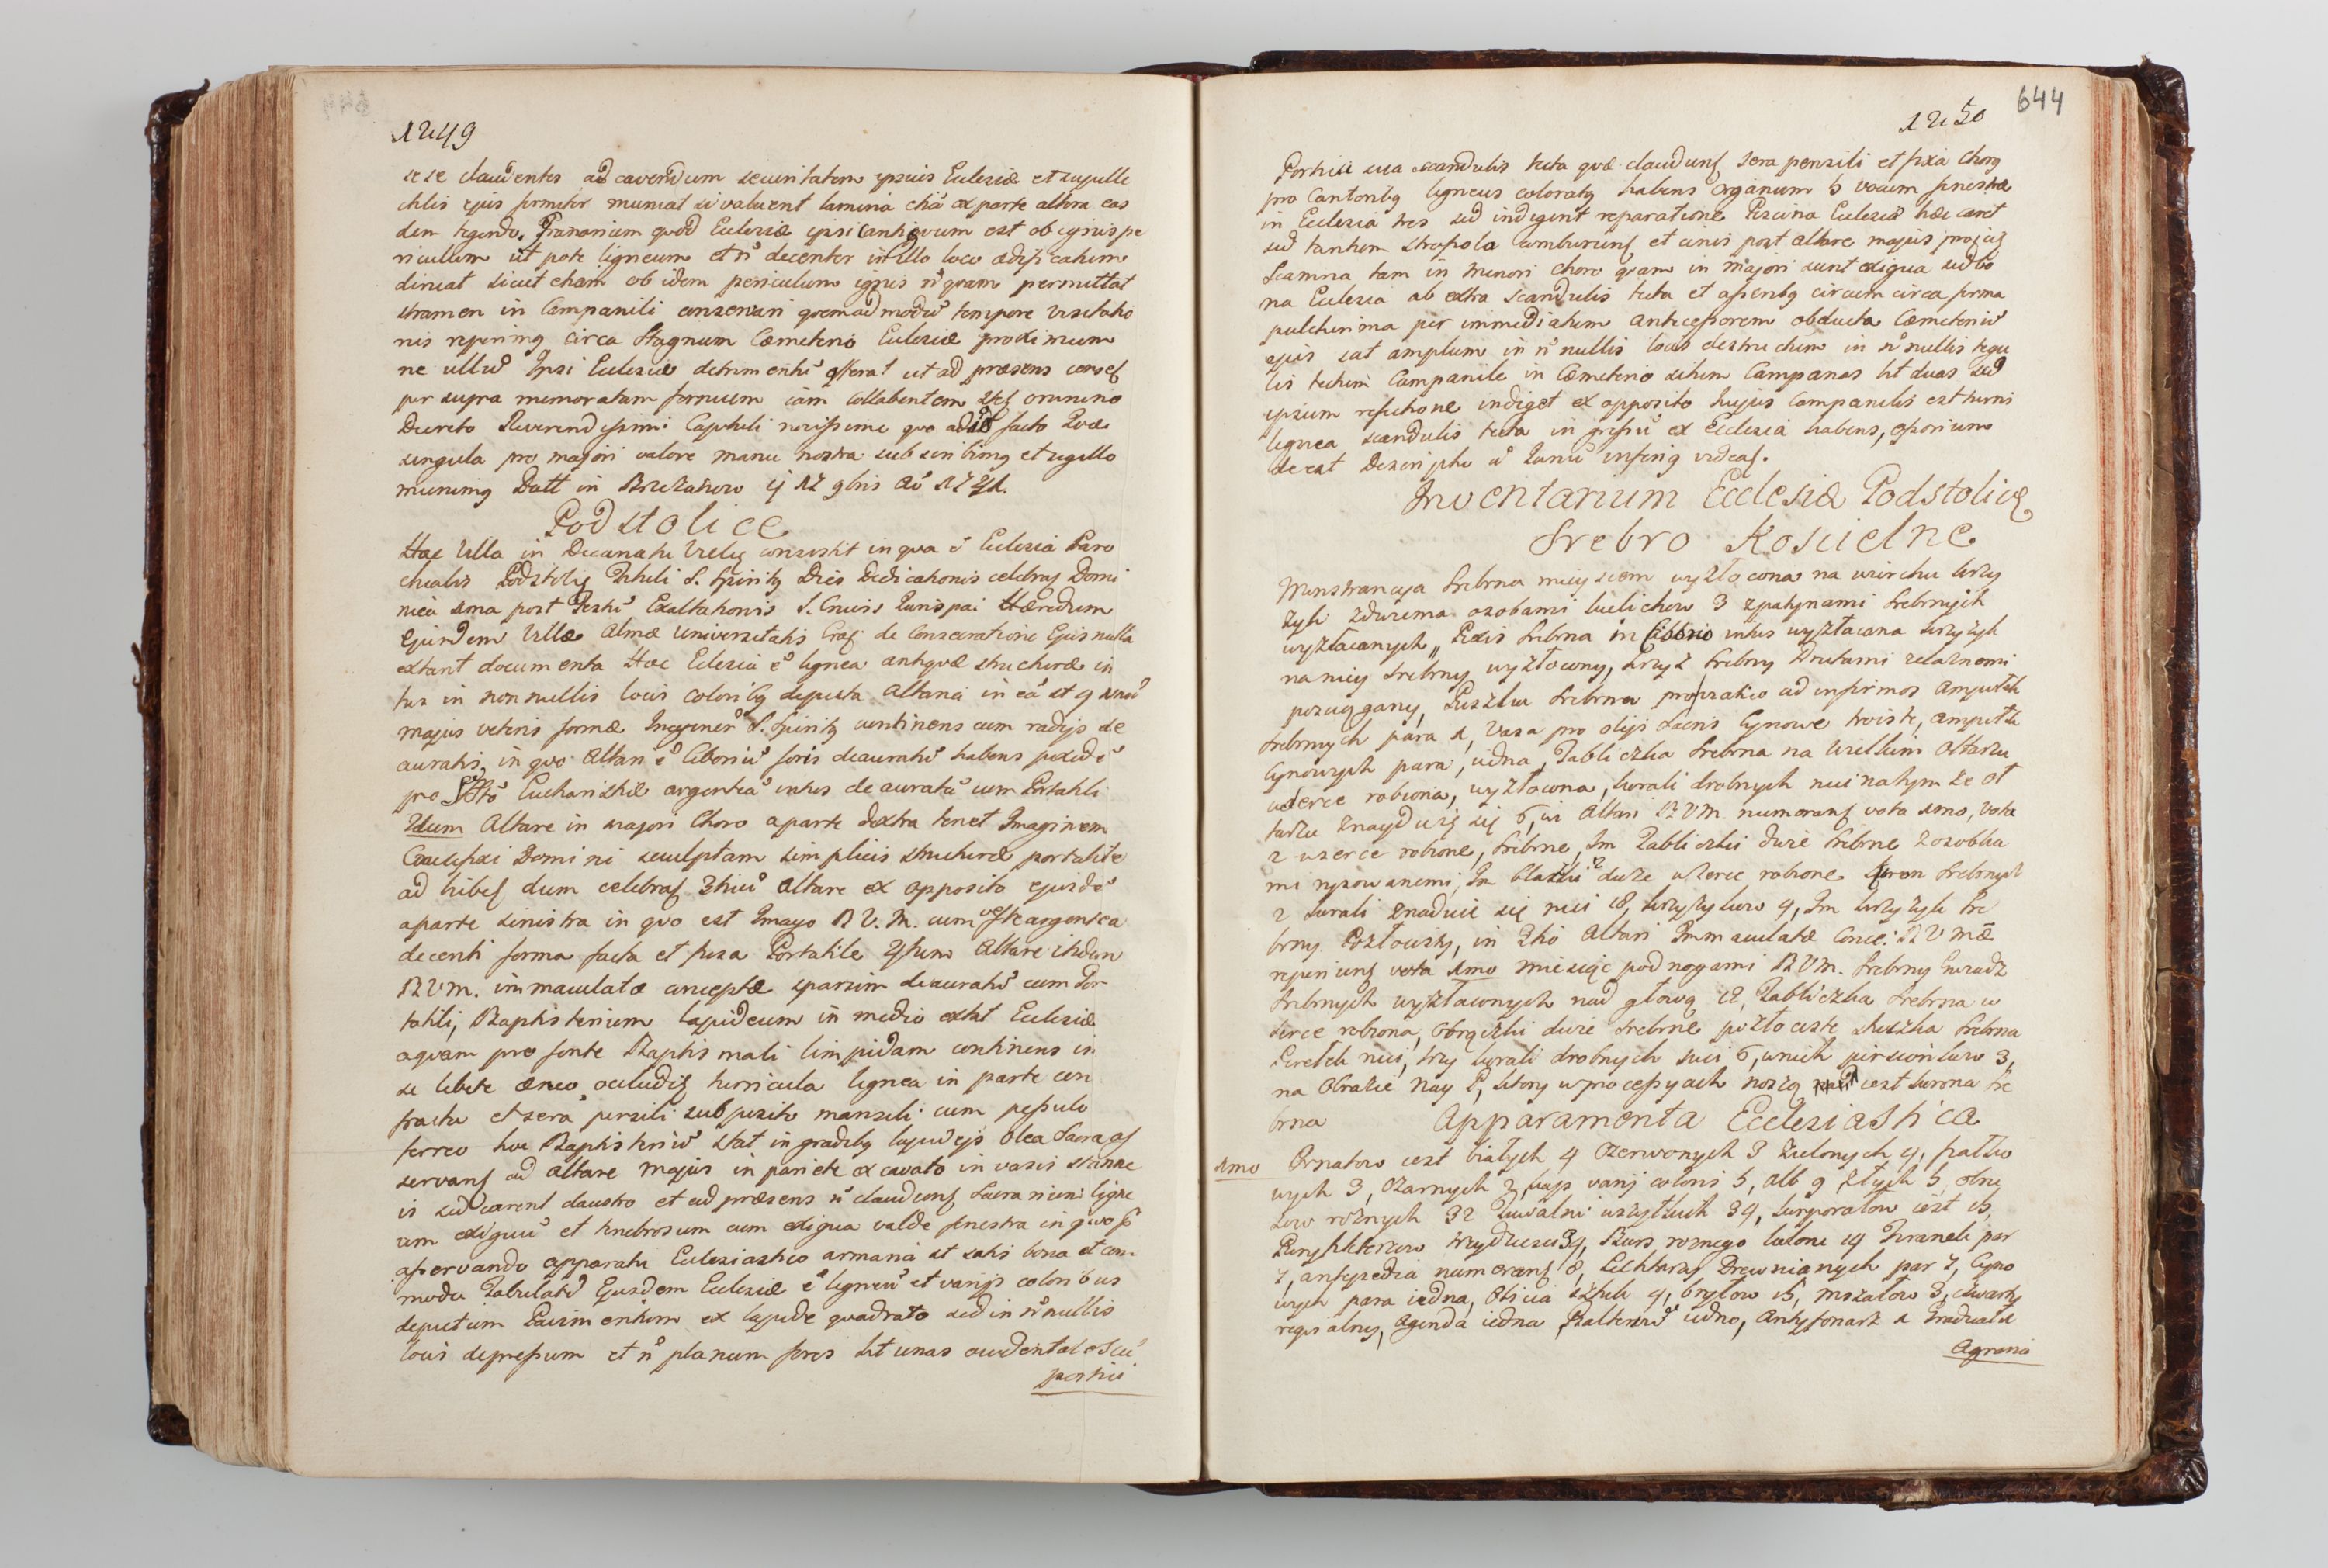 1249
sese claudentes ad cavendum securitatem ipsius Eulesiæ et supelle
ctilis ejus firmiter muniat si valuerit lamina etiã ex parte altera eas
dem tegendo. Granarium quod Eulesiæ ipsi antiquum est ob ignis pe
riculum ut pote ligneum et nõ decenter in illo loco ædificatum
diruat sicut etiam ob idem periculum ignis nõ quam permittat
stramen in Campanili conservari quemadmodũ tempore Visitatio
nis reperimg circa Stagnum Cœmeterio Eulesiæ proximum
ne ullũ Ipsi Eulesiæ detrimentũ afferat ut ad præsens
per supra memoratum fornicem iam collabentem omnino
Decreto Reverendissimi Capituli novissime quo ad id facto Quæ
singula pro majori valore manu nostra subscribimg et sigillo
munimg Datt in Brzezanow 17 9bris Aõ 17
Podstolice
Hæc Villa in Decanatu Vielig consistit in qua ẽ Eulesia Paro
chialis Podstolig Tituli S. Spiritg Dies Dedicationis celebraʃ Domi
nica 1ma post Festũ Exaltationis S. Crucis Jurispat Hæredum
Ejusdem Villæ Almæ Universitatis Craʃ de Consecratione Ejus nulla
extant documenta Hæc Eclesia ẽ lignea antiquæ structuræ in
tus in nonnullis locis coloribg depicta Altaria in eã st 4 unũ
majus veteris formæ Imaginẽ S. Spiritg continens cum radijs de
auratis, in quo Altari ẽ Ciboriũ foris deauratũ habens pixidẽ
pro SSto Eucharistiæ argenteã intus deauratã cum Portatili
2dum Altare in majori Choro a parte dextra tenet Imaginem
Crucifixi Domini sculptam simplicis structuræ portatile
ad hibeʃ dum celebraʃ 3tiũ Altare ex opposito ejusdẽ
a parte sinistra in quo est Imago B V. M. cum veste argentea
decenti forma facta et fusa Portatile 4tum Altare itidem
B V M. immaculatæ conceptæ sparsim deauratũ cum Por
tatili, Baptisterium lapideum in medio extat Eulesiæ
aquam pro fonte Baptismali limpidam continens in
se lebete æneo, occluditg turricula lignea in parte con
fracta et sera pensili sub pixide mansili cum pessulo
ferreo hoc Baptisteriũ stat in gradibg lapideijs Olea Sacra aʃ
servanʃ ad Altare majus in pariete excavato in vasis stanne
is sed carent claustro et ad præsens nõ claudunʃ Sacrarium ligne
um exiguũ et tenebrosum cum exigua valde fenestra in quo
asservando apparatu Eulesiastico armaria st satis bona et com
moda Tabulatũ Ejusdem Eulesiæ ẽ ligneũ et varijs coloribus
depictum Pavimentum ex lapide quadrato sed in nõ nullis
locis depressum et nõ planum fores ht unas occidentales cũ
porticu
1250
644
Porticu sua scandulis tecta quæ claudunʃ sera pensili et fixa Chorg
pro Cantoribg ligneus coloratg habens Organum 5 vocum fenestræ
in Eclesia tres sed indigent reparatione Piscina Eulesia hæc caret
sed tantum comburunʃ et cinis post Altare majus
Scamna tam in minori choro quam in majori sunt exigua sed bo
na Eulesia ab extra scandulis tecta et asseribg circum circa firma
pulcherima per immediatum antecessorem obducta Cœmeteriũ
ejus sat amplum in nõ nullis locis destructum in nõ nullis tegu
lis tectum Campanile in Cœmeterio situm Campanas ht duas sed
ipsum refectione indiget ex opposito hujus Campanilis est turris
lignea scandulis tecta in ex Eclesia habens, Osorium
deest Descriptio
Inventarium Ecclesiæ Podstolicg
Srebro Koscielne
Monstrancya srebrna mieyscem wyzłocona na wierzchu krzy
zyk zdwiema osobami kielichow 3 zpatynami srebrnych
wyzłacanych, Pixis srebrna in Ciborio intus wyzłacana krzyzyk
na niey srebrny wyzłocony, krzyz srebrny Drutami zelaznemi
posciągany, Puszka srebrna pro ad infirmos ampułek
srebrnych para 1, Vasa pro olijs Sacris Cynowe troiste, ampułki
Cynowych para iedna, Tabliczka srebrna na Wielkim Ołtarzu
wserce robiona, wyzłocona, korali drobnych nici na tym ze oł
tarzu znayduią się 6, in Altari B V M numeranʃ vota 1mo, Vota
2 wserce robione, srebrne, Im Tabliczki duze srebrne z osobka
mi rysowanemi, Im Blaszki 2 duze wserce robione koron srebrnych
2 korali znaduie się nici 18, krzyzykow 4, Im krzyzyk sre
brny Pozłocisty, in 2do Altari Immaculatæ Conce: B V Mæ
reperiunʃ vota 1mo miesiąc pod nogami B V M. srebrny Gwiazd
srebrnych wyzłaconych nad głową 12, Tabliczka srebrna w
serce robiona, obrączki duze srebrne pozłociste Sukienka srebrna
Perełek nici, trzy korali drobnych nici 6, unich pierscionkow 3,
na Obrazie Nay P, ktory wprocessyach noszą iest korona sre
brna
Apparamenta Ecclesiastica
1mo Ornatow iest białych 4 Czerwonych 3 Zielonych 4, fiałko
wych 3, Czarnych 2, kap varij coloris 5, alb 9 złych 5, obru
sow roznych 32 Tuwalni wszytkich 34, Korporałow iest 15,
Puryfikaterzow wszytkich 34, Burs roznego koloru 14 Firanek par
7, antypedia numeranʃ 8, Lichtarzy Drewnianych par 7, Cyno
wych para iedna, Oblicia sztuk 4, brytow 15, mszałow 3, dwa
Agenda iedna Psalterziũ iedno, Antyfonarz 1 Graduał 1
Agrena